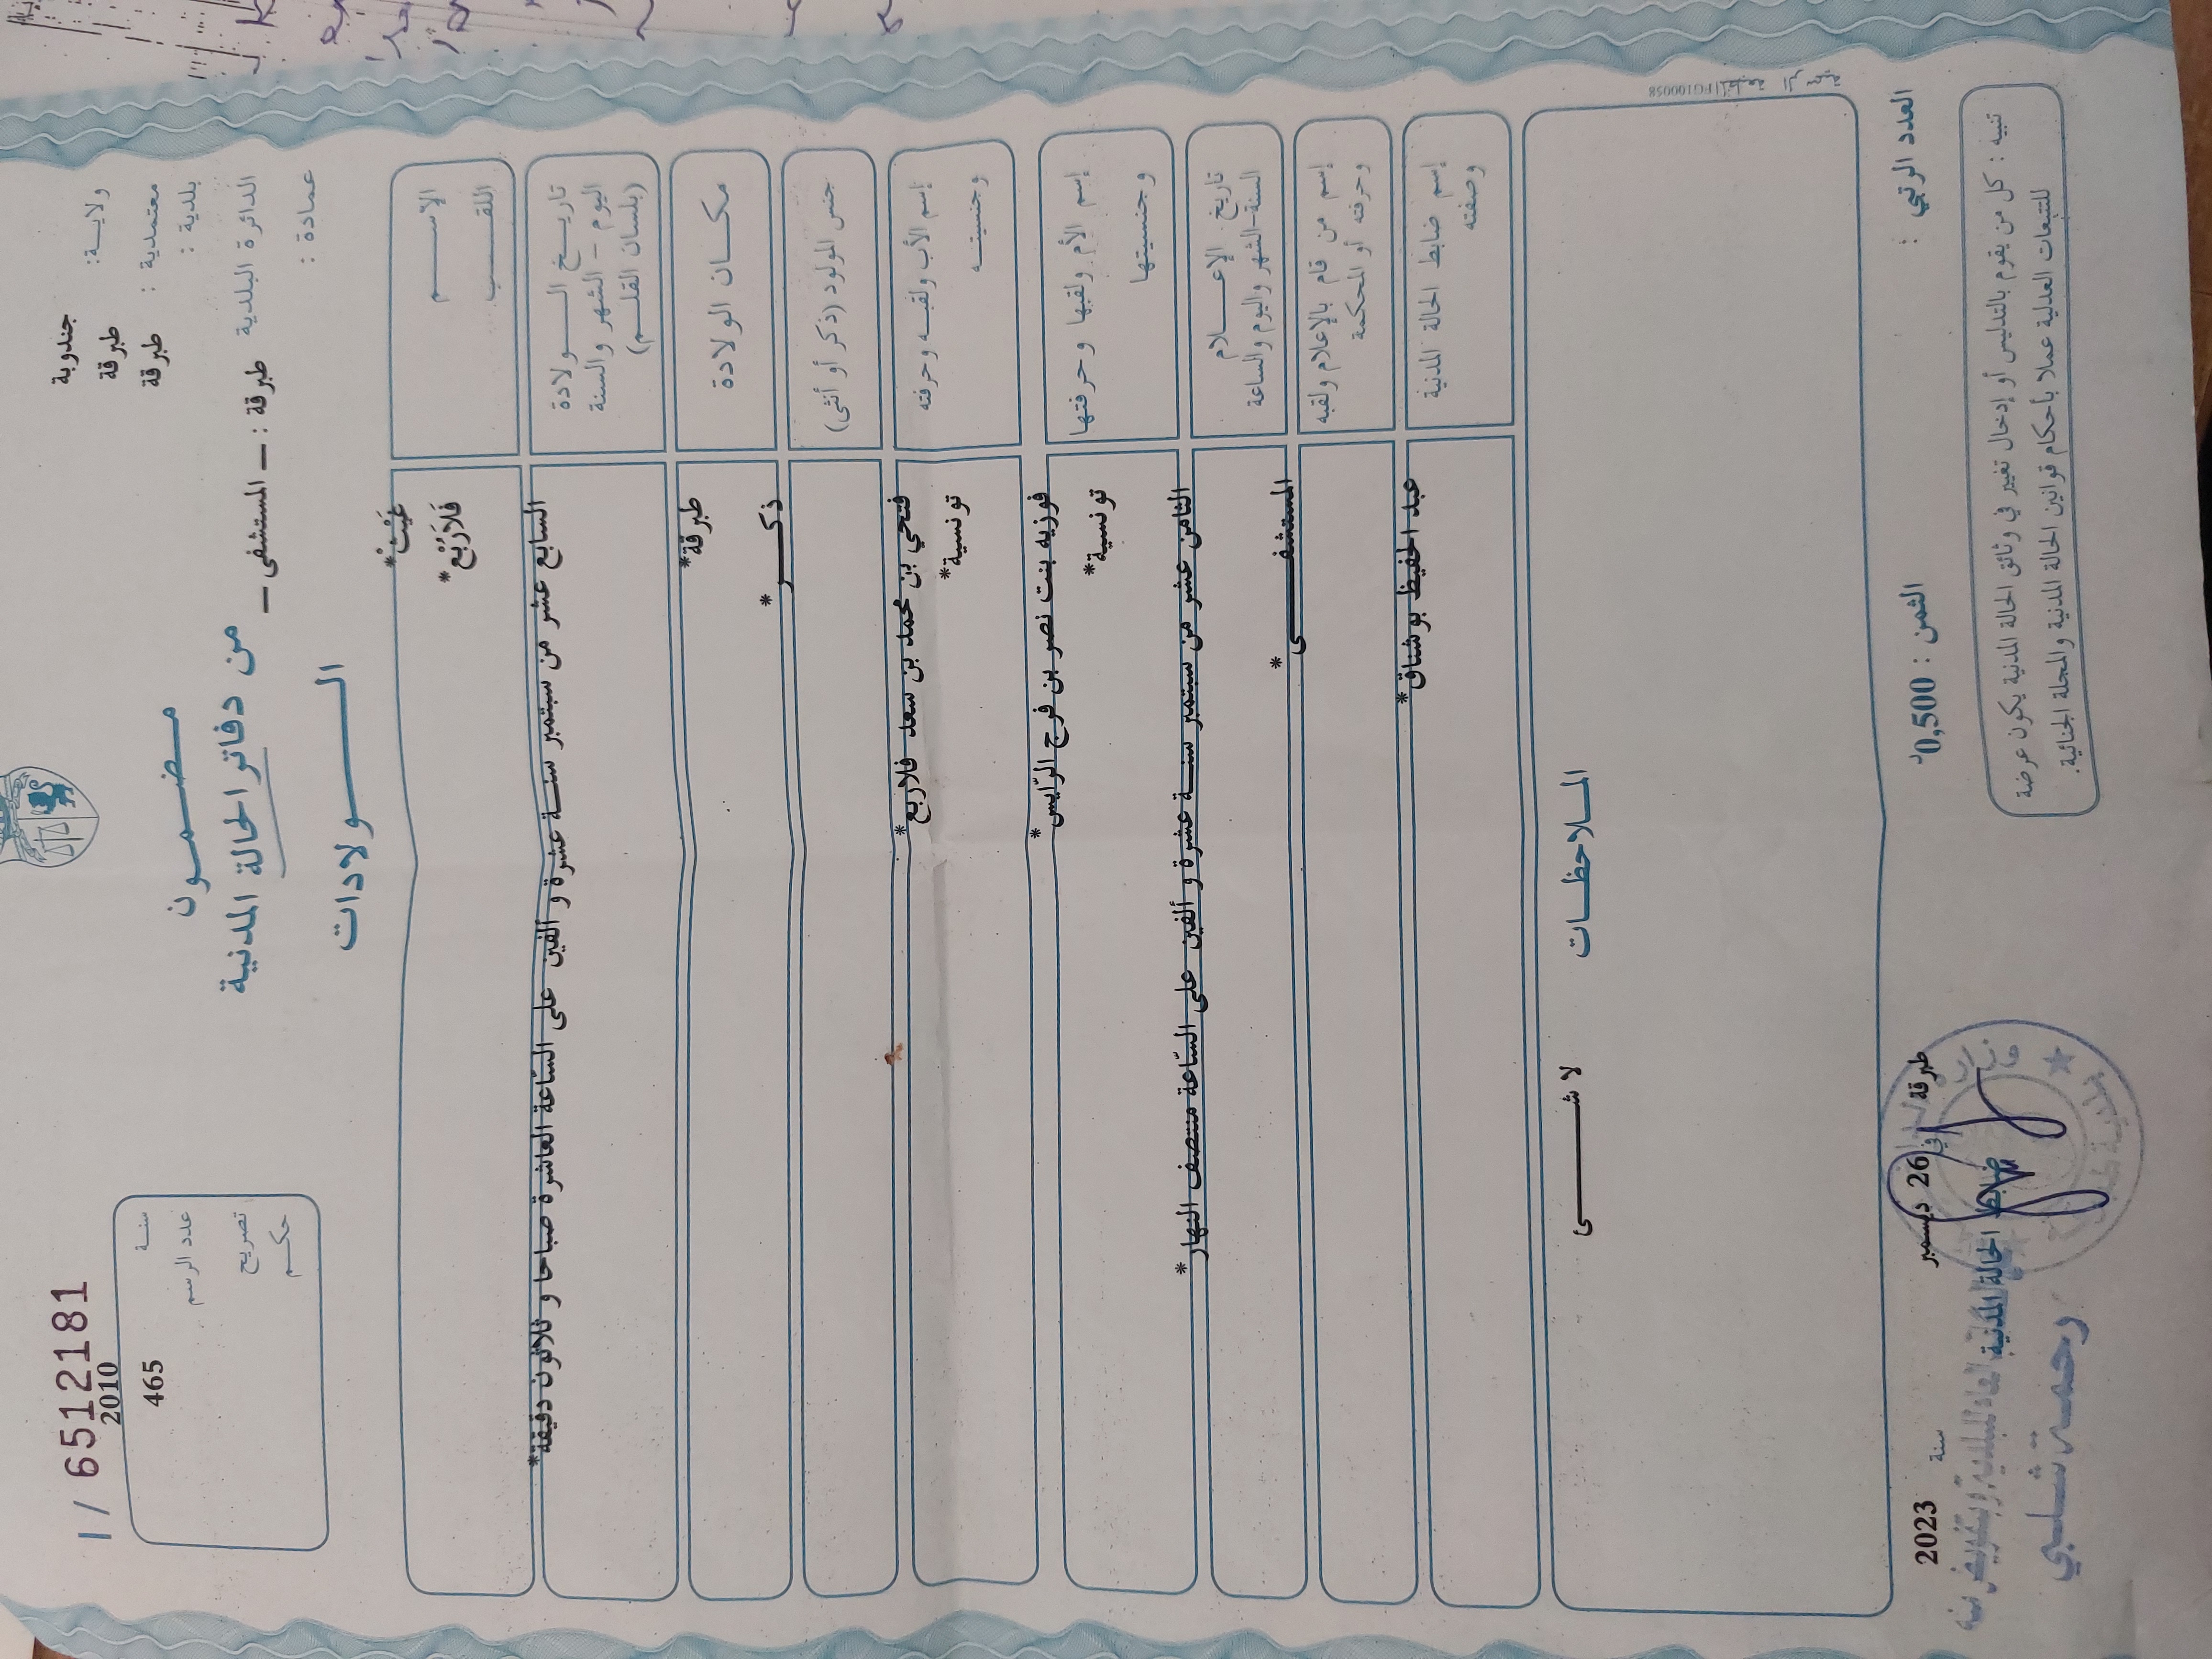 1 / 65121811
ولايـة: جندوبة
معتمدية : طبرقة
بلدية : طبرقة
الدائرة البلدية طبرقة : – المستشفى –
عمادة :
2010 سنـة
465 عدد الرسم
تصريح
حكـم
مضــمــون
من دفاتر الحالة المدنية
الــــولادات
الإســـم غَيْث*
اللقـــب فَلَارْبَع*
تاريـخ الـــولادة
اليوم – الشهر والسنة
(بلسان القلـم)
السابع عشر من سبتمبر سنـــة عشرة و ألفين على السّاعة العاشرة صباحا و ثلاثون دقيقة*
مكـان الولادة طبرقة*
جنس المولود (ذكر أو أنثى) ذكـــــر*
إسم الأب ولقبـه وحرفته فتحي بن محمد بن سعد فلاربع*
وجنسيتـه تونسية*
إسم الأم ولقبها وحرفتها فوزيه بنت نصر بن فرج الرّايس*
وجنسيتها تونسية*
تاريخ الإعـــلام
السنة-الشهر واليوم والساعة
الثامن عشر من سبتمبر سنـــة عشرة و ألفين على السّاعة منتصف النهار*
إسم من قام بالإعلام ولقبه المستشفـــــى*
وحرفته أو المحكمة
إسم ضابط الحالة المدنية عبد الحفيظ بوشناق*
وصفته
الملاحظـات
لا شـــــى
العدد الرتبي :
الثمن : 0,500د
طبرقة في 26 ديسمبر سنة 2023
ضابط الحالة المدنية
رحمة شلبي
تنبيه : كل من يقوم بالتدليس أو إدخال تغيير في وثائق الحالة المدنية يكون عرضة
للتتبعات العدلية عملا بأحكام قوانين الحالة المدنية والمجلة الجنائية.